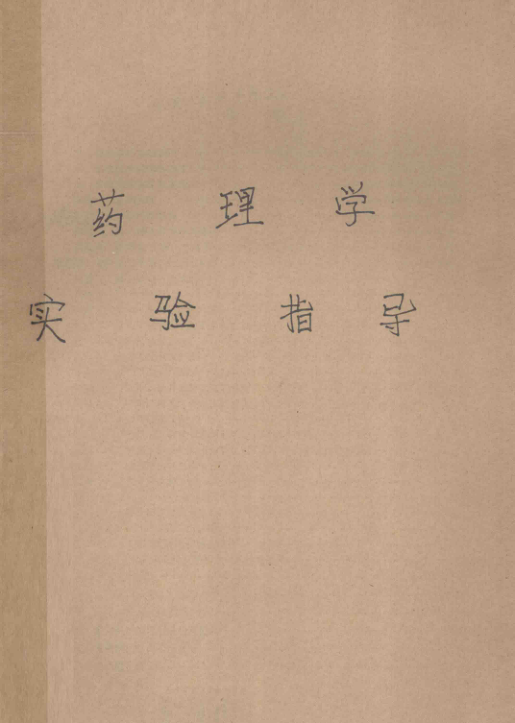 药理学
实验指导